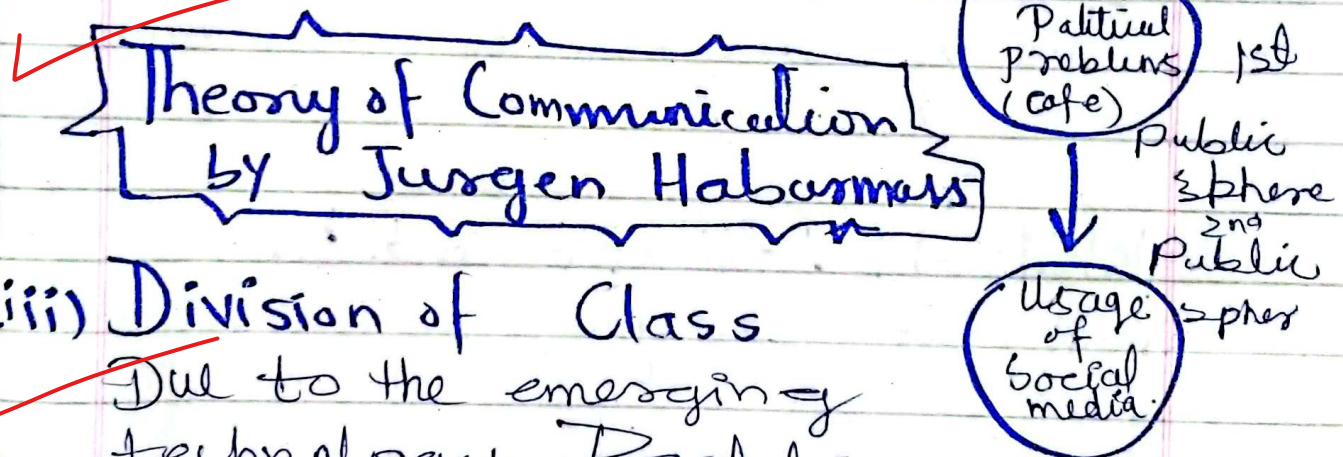 Theory of Communication
by Jurgen Habarmass
iii) Division of Class
Due to the emerging
technology
Political
Problems
(cafe)
1st
Public
Sphere
2nd
Public
Spher
Usage
of
Social
media.